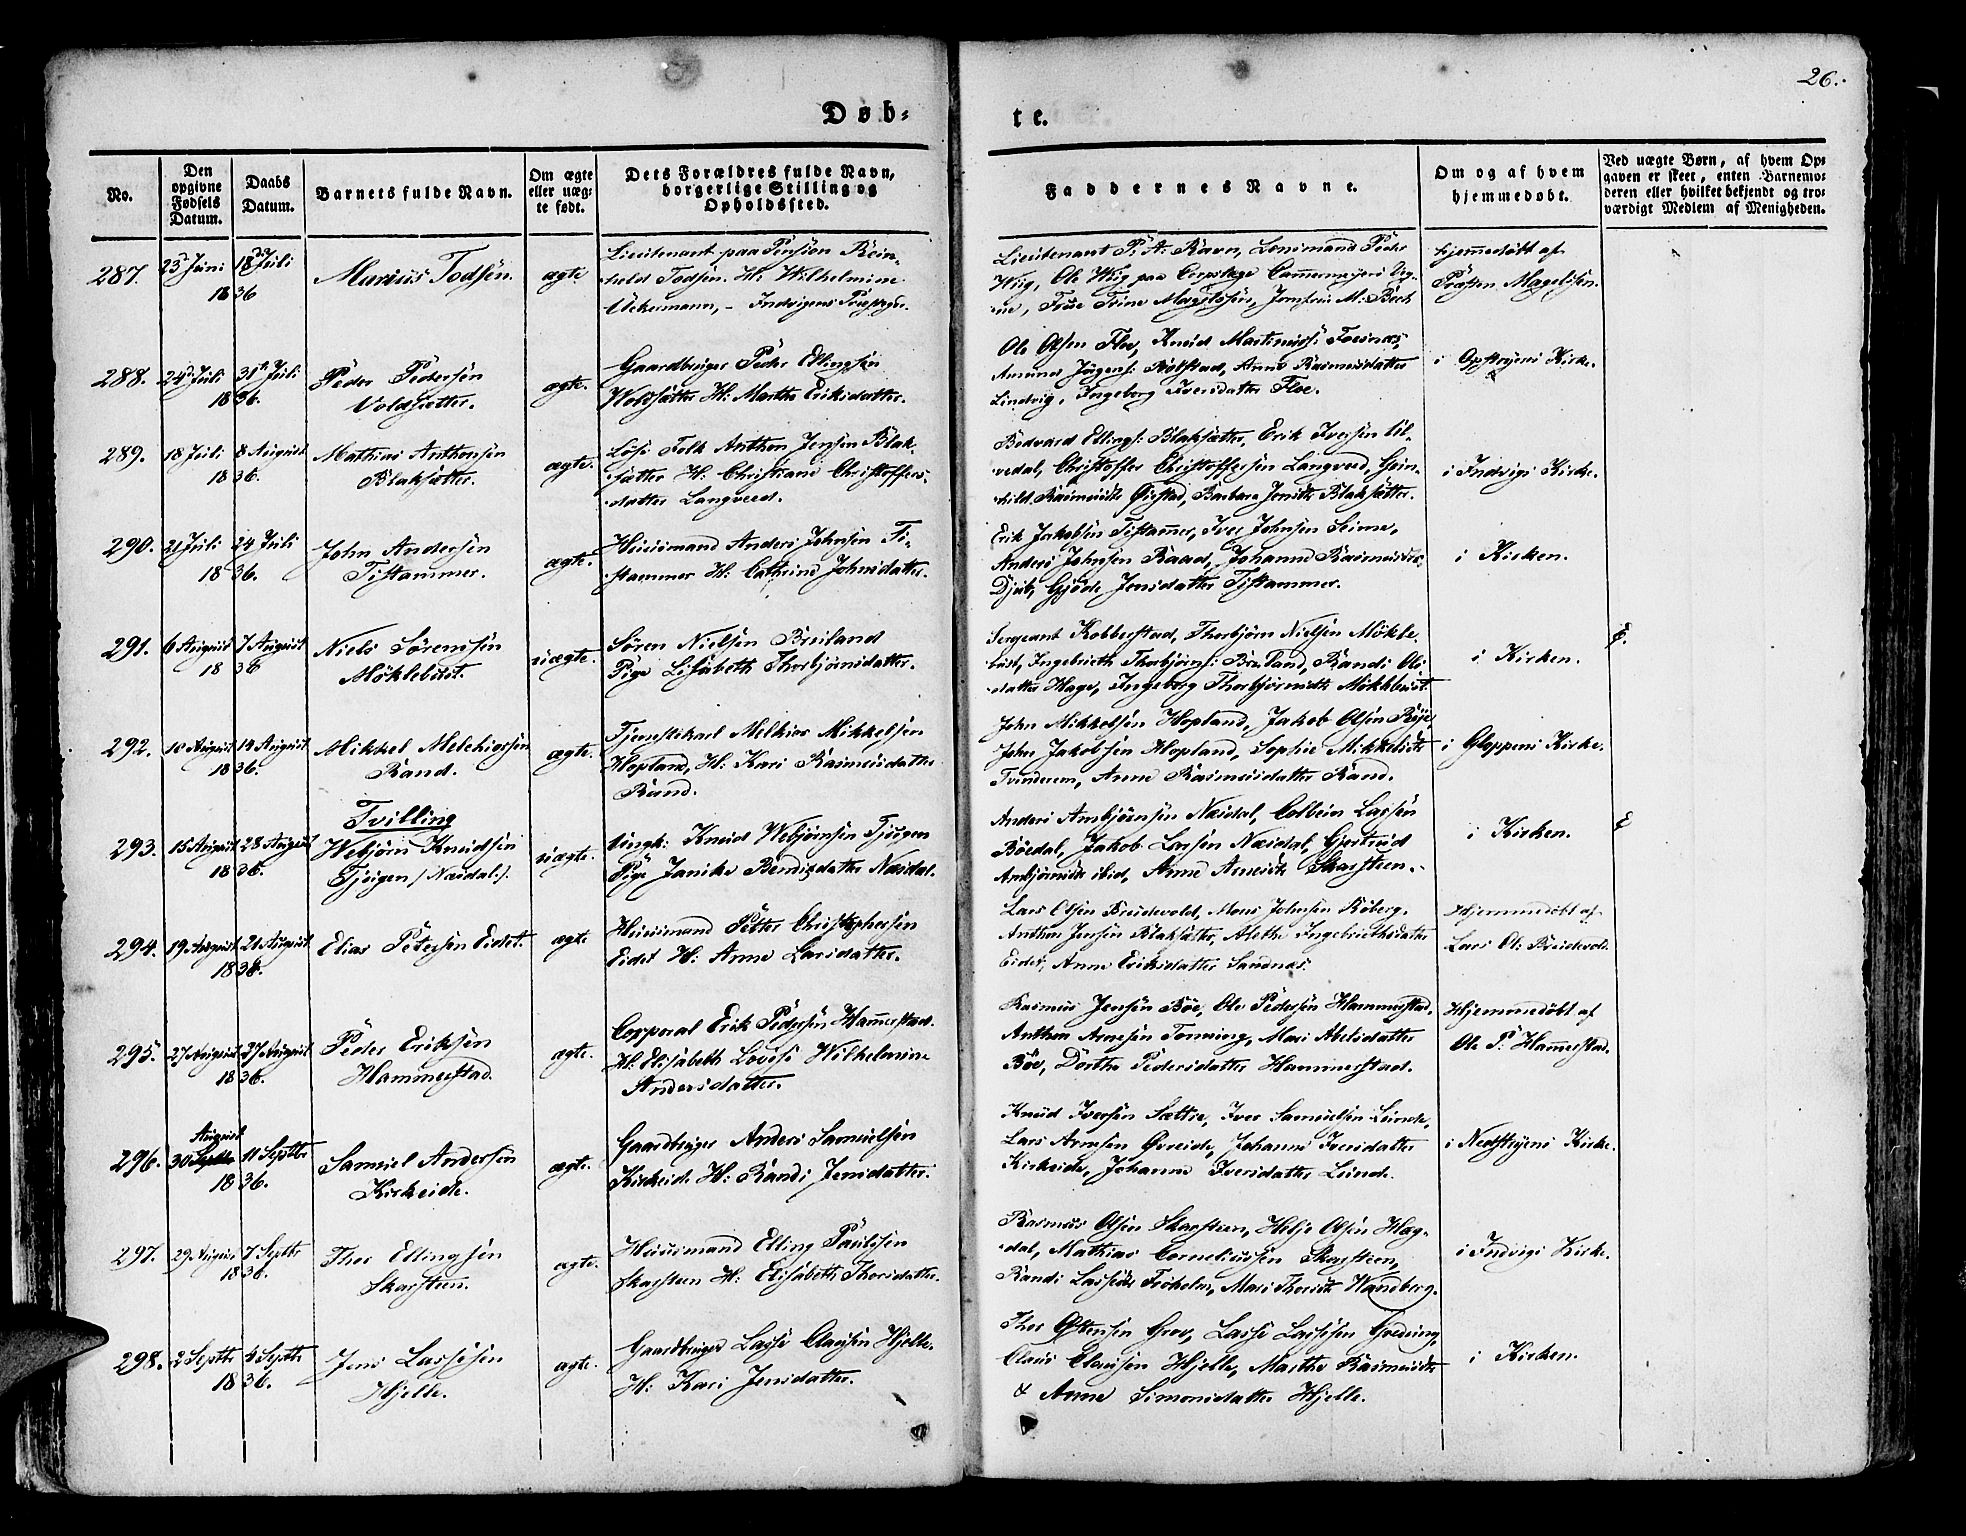 26.
Døb-
te.
No.
Den opgivne Fødsels Datum.
Daabs Datum.
Barnets fulde Navn.
Om ægte eller uæg-te født.
Dets Forældres fulde Navn, borgerlige Stilling og Opholdssted.
Faddernes Navne.
Om og af hvem hjemmedøbt.
Ved uægte Børn, af hvem Op-gaven er skeet, enten Barnemo-deren eller hvilket bekjendt og tro-værdigt Medlem af Menigheden.
287.
23 Juni
Juli
1836
Marius Todsen.
ægte
Lieutenant paa Pension Rein-
hold Todsen. H: Wilhelmine
Uckermann, - Indvigens
Lieutenant P: A: Ravn, Lensmand Peder
Wiig, Ole Wiig paa
Frue Trine Magelssen, Jomfru M: Beck
hjemmedöbt af
Præsten Magelssen.
288.
24 Juli
31 Juli
1836.
Peder Pedersen
Voldsætter.
ægte.
Gaardbruger Peder Ellingsen
Woldsætter H: Marthe Eriksdatter.
Ole Olsen Floe, Knud Martinuss:
Amund Jörgens: Rolstad, Anne Rasmusdatter
Lindvig, Ingeborg Iversdatter Floe.
i Opstryens Kirke.
289.
18 Juli
8 August
1836.
Mathias Anthonsen
Blaksætter.
ægte.
Löse Folk Anthon Jensen Blak-
sætter H: Christiane Christoffers-
datter Langveed.
Bodvard Ellings: Blaksætter, Erik Iversen Ul-
vedal, Christoffer Christoffersen Langveed, Gun-
hild Rasmusdtr Ørstad, Barbara Jensdtr Blaksætter.
i Indvigs Kirke.
290.
21 Juli
24 Juli
1836.
John Andersen
Tistammer.
ægte.
Huusmand Anders Johnsen Ti-
stammer H: Cathrine Johnsdatter.
Erik Jakobsen Tistammer, Iver Johnsen Seime,
Anders Johnsen Raad, Johanne Rasmusdtr
Gjöde Jensdatter Tistammer.
i Kirken.
291.
6 August
7 August
1836
Niels Sörensen
Möklebust.
uægte.
Sören Nielsen Breiland
Pige Lisabeth Thorbjörnsdatter.
Sergeant Kobberstad, Thorbjörn Nielsen Mökle-
bust, Ingebrieth Thorbjörns: Breiland, Randi Ols-
datter Hage, Ingeborg Thorbjörnsdtr Möklebust.
i Kirken.
292.
10 August
14 August
1836.
Mikkel Melchiorsen
Rand.
ægte.
Tjenstkarl Melkior Mikkelsen
Hopland, H: Kari Rasmusdatter
Rand.
John Mikkelsen Hopland, Jakob Olsen Röie,
John Jakobsen Hopland, Sophie Mikkelsdtr
Tvinderem, Anne Rasmusdatter Rand.
i Gloppens Kirke.
293.
15 August
28 August
1836.
Tvilling
Webjörn Knudsen
Tjugen / Næsdal.
uægte.
Ungk: Knud Webjörnsen Tjugen
Pige Janike Bendixdatter Næsdal.
Anders Arnbjörnsen Næsdal, Colbein Lassen
Böedal, Jakob Lassen Næsdal, Gjertrud
Arnbjörnsdtr ibid, Anne Arnesdtr Skarsteen.
i Kirken.
294.
19 August
21 August
1836.
Elias Petersen Eidet.
ægte
Huusmand Petter Christophersen
Eidet H: Anne Larsdatter.
Lars Olsen Breidevold, Mons Johnsen Roberg,
Anthon Jensen Blaksætter, Alethe Ingebriethsdatter
Eidet, Anne Eriksdatter Sandnæs.
Hjemmedöbt af
Lars Ol: Breidevold.
295.
27 August
27 August
1836.
Peder Eriksen
Hammerstad.
ægte.
Corporal Erik Pedersen Hammerstad.
H: Elisabeth Lovise Wilhelmine
Andersdatter.
Rasmus Jensen Böe, Ole Pedersen Hammerstad,
Anthon Arnesen Tonning, Mari Abelsdatter
Böe, Dorthe Pedersdatter Hammerstad.
Hjemmedöbt af
Ole P: Hammerstad.
296.
August
30
11 Septbr
1836.
Samuel Andersen
Kirkeide.
ægte.
Gaardbruger Anders Samuelsen
Kirkeide H: Randi Jensdatter.
Knud Iversen Sættre, Iver Samuelsen Lunde,
Lars Arnesen Øvreide, Johanne Iversdatter
Kirkeide, Johanne Iversdatter Lunde.
i Nedstryens Kirke.
297.
29 August
7 Septbr
1836.
Thor Ellingsen
Skarsteen.
ægte.
Huusmand Elling Paulsen
Skarsteen H: Elisabeth Thorsdatter.
Rasmus Olsen Skarsteen, Helje Olsen Hag-
dal, Mathias Corneliussen Skarsteen,
Randi Lassedtr Froholm, Mari Thorsdtr Wandberg.
i Indvigs Kirke.
298.
2 Septbr
4 Septbr
1836.
Jens Lassesen
Hjelle.
ægte.
Gaardbruger Lasse Clausen Hjelle.
H: Kari Jensdatter.
Thor Ostensen Grov, Lasse Lassesen
Claus Clausen Hjelle, Marthe Rasmusdtr
& Anne Simonsdatter Hjelle.
i Kirken.